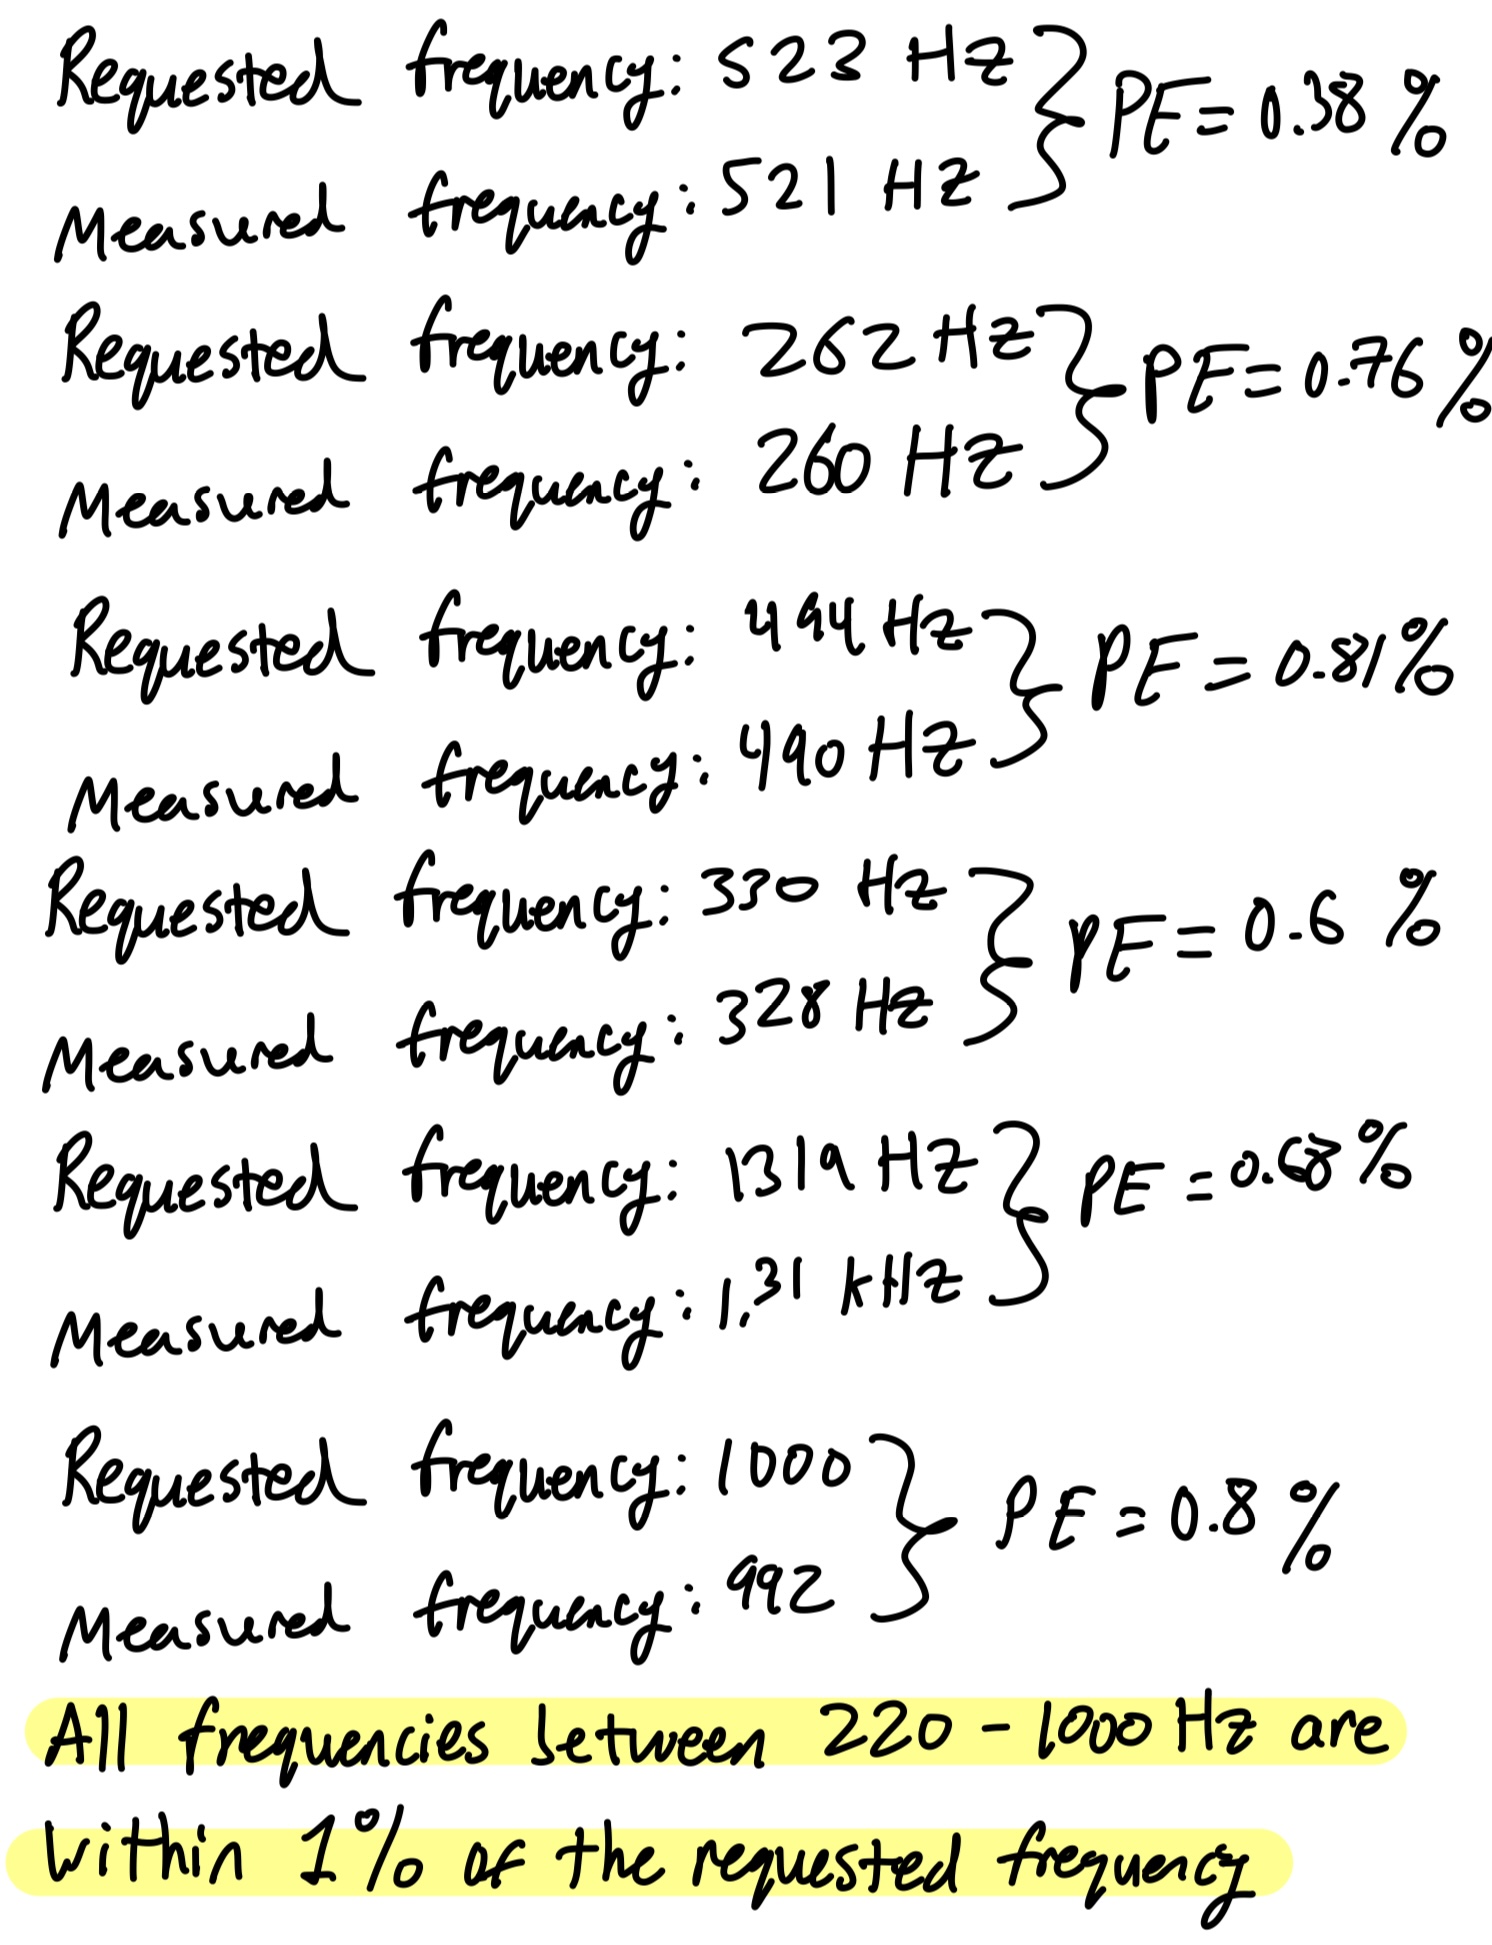 Requested frequency: 523 Hz
Measured frequency: 521 Hz
PE = 0.38 %
Requested frequency: 262 Hz
Measured frequency: 260 Hz
PE = 0.76 %
Requested frequency: 494 Hz
Measured frequency: 490 Hz
PE = 0.81 %
Requested frequency: 330 Hz
Measured frequency: 328 Hz
PE = 0.6 %
Requested frequency: 1319 Hz
Measured frequency: 1.31 kHz
PE = 0.68 %
Requested frequency: 1000
Measured frequency: 992
PE = 0.8 %
All frequencies between 220 - 1000 Hz are
within 1% of the requested frequency